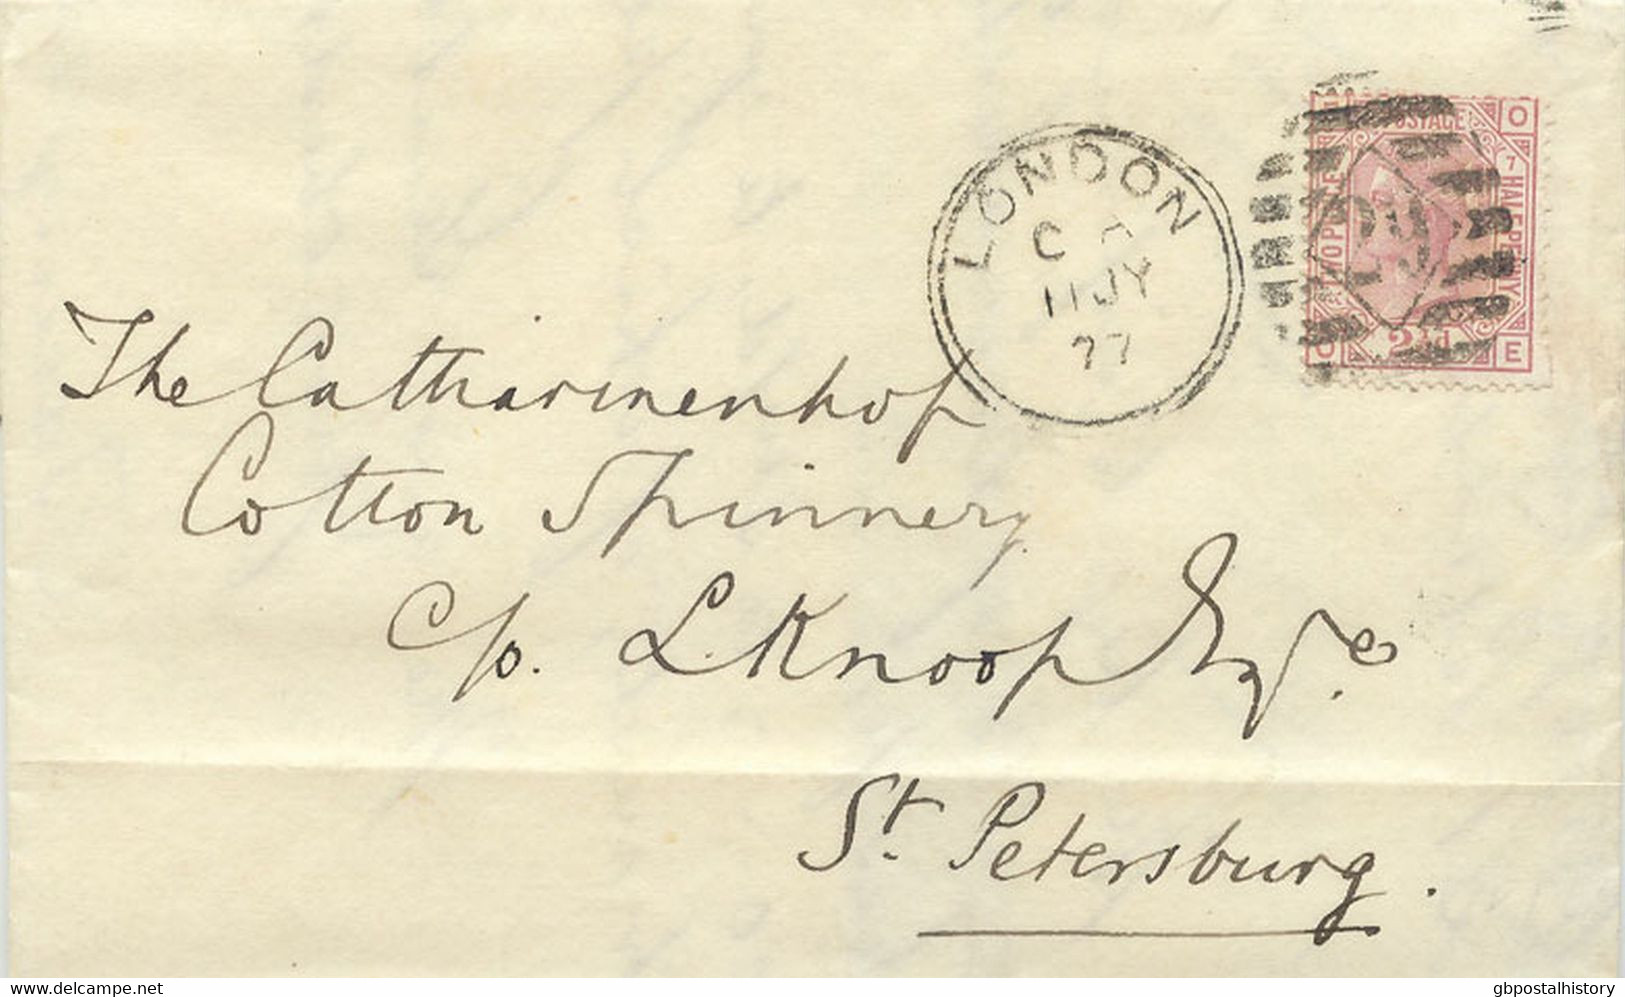 LONDON
C
11 JY
77
POSTAGE
TWO PENCE
HALF-PENNY
7
O
O
E
2½d
The Catharinenhof
Cotton Spinnery
c/o. L. Knoop Esqre
St. Petersburg.
delcampe.net
gbpostalhistory